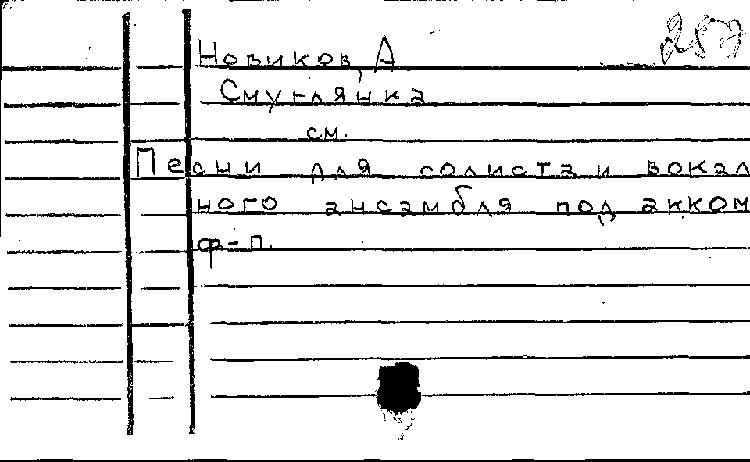 257
Новиков, А
Смуглянка
см.
Песни для солиста и вокал
ного ансамбля под акком
ф-п.